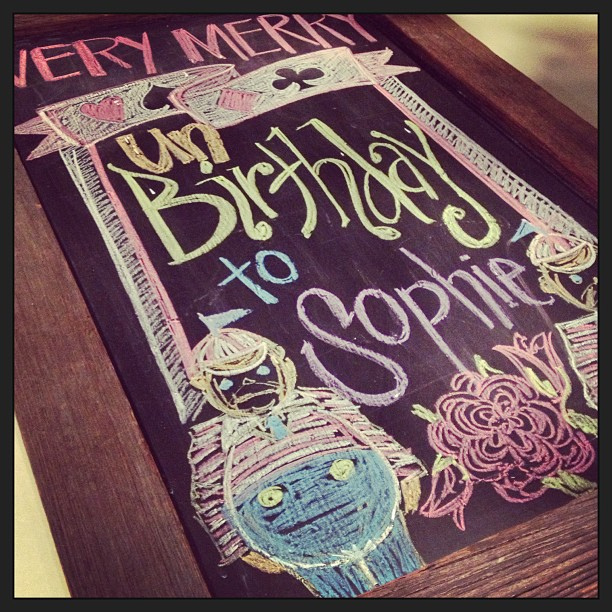 VERY MERRY
un
Birthday
to
Sophie